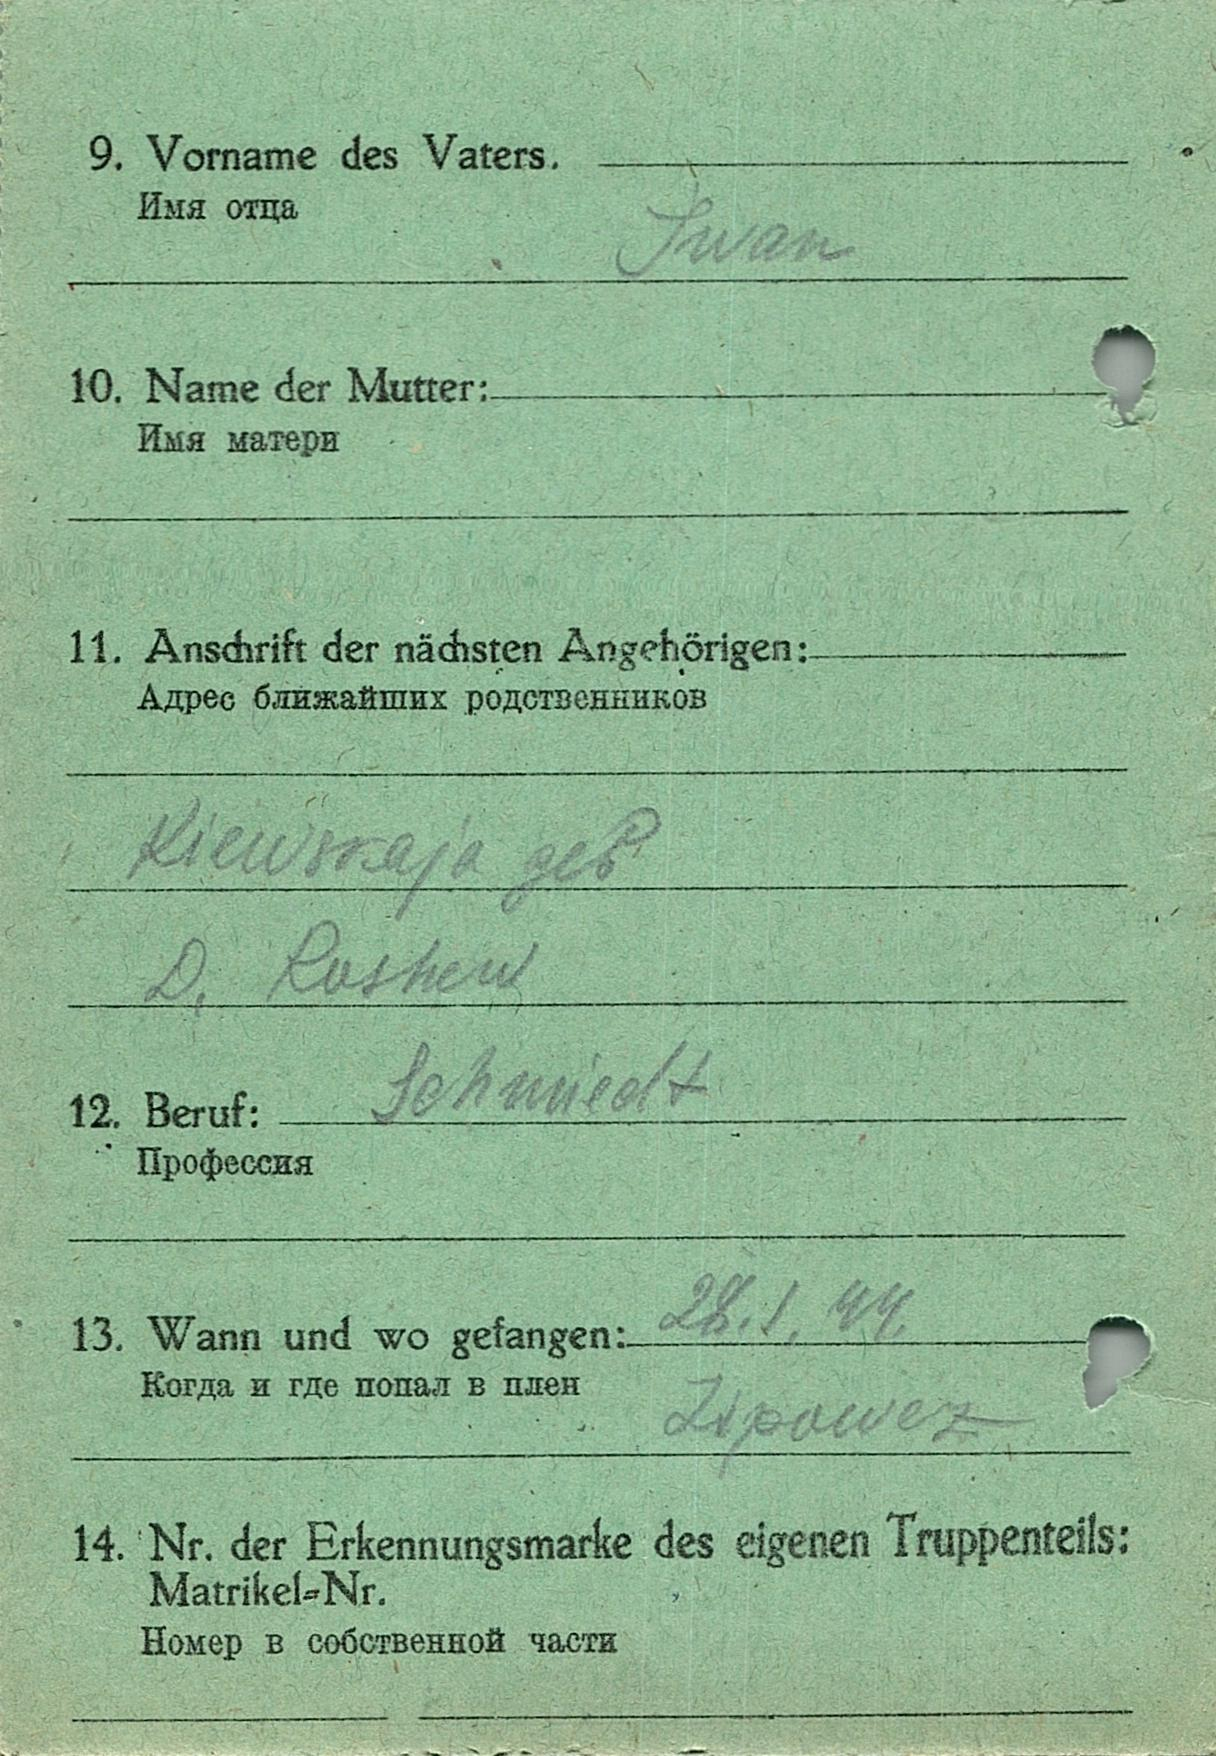 9. Vorname des Vaters.
Имя отца
Iwan
10. Name der Mutter:
Имя матери
11. Anschrift der nächsten Angehörigen:
Адрес ближайших родственников
Kiewskaja geb
D. Roshew
12. Beruf: Schmiedt
Профессия
13. Wann und wo gefangen: 28.1.44.
Когда и где попал в плен
Lipowez
14. Nr. der Erkennungsmarke des eigenen Truppenteils:
Matrikel-Nr.
Номер в собственной части